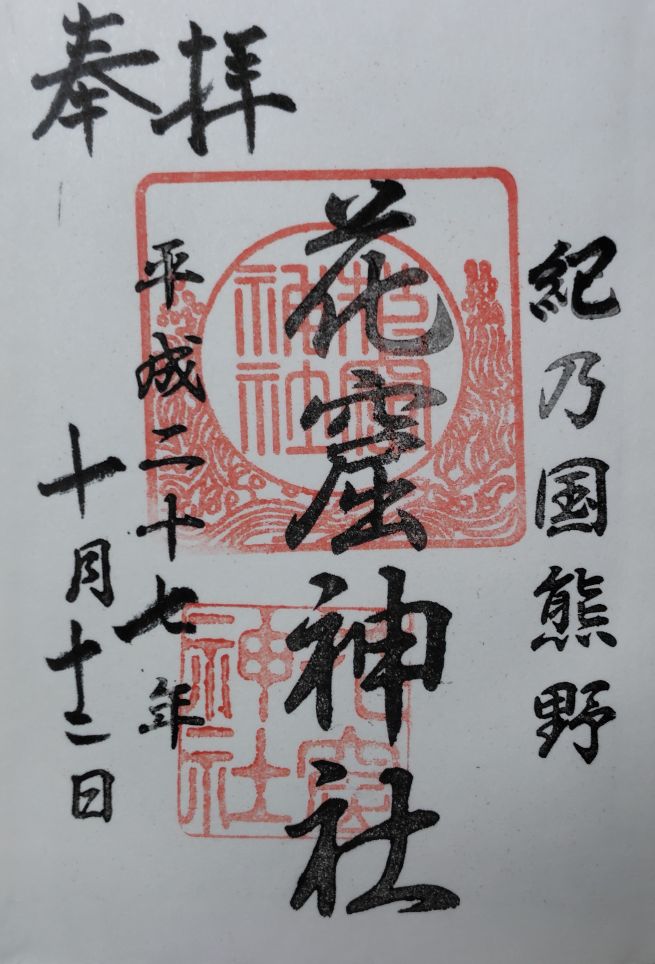 奉拝
紀乃国熊野
花窟神社
平成二十七年
十月十二日
花窟神社
花窟神社